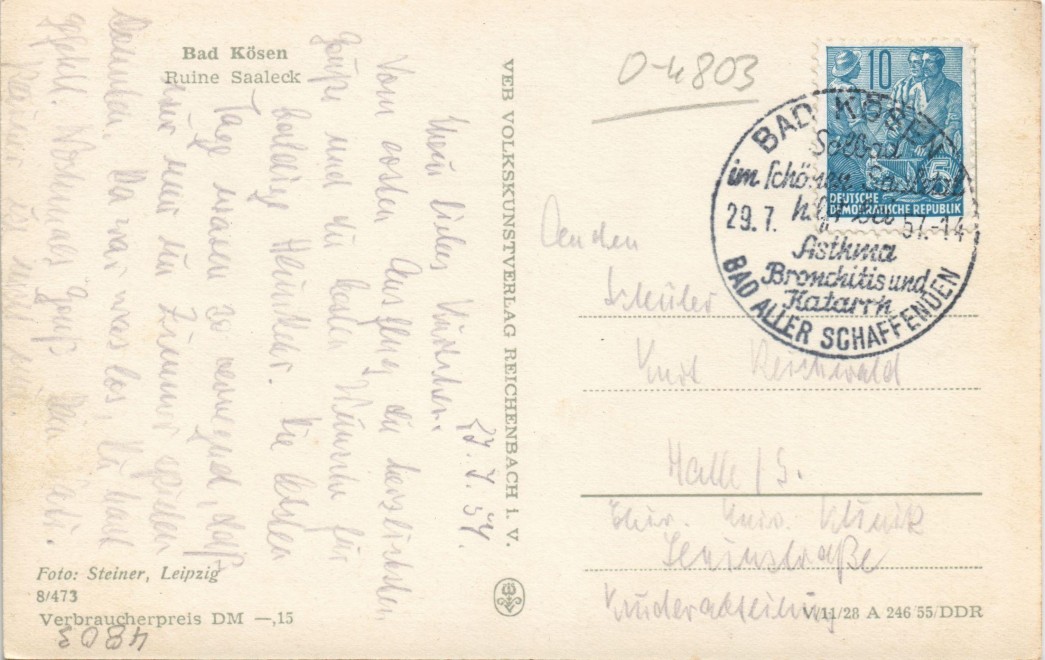 Bad Kösen
Ruine Saaleck
27.7.57.
Mein liebes Kurtchen.
Vom ersten Ausflug die herzlichsten
Grüße und die besten Wünsche für
baldige
Die letzten
Tage waren so verregnet, daß
wir nur im Zimmer spielen
konnten. Da war was los, Du hast
gefehlt.
VEB VOLKSKUNSTVERLAG REICHENBACH i. V.
Foto: Steiner, Leipzig
8/473
Verbraucherpreis DM —,15
4803
0-4803
10
5
DEUTSCHE
DEMOKRATISCHE REPUBLIK
BAD KÖSEN
Solbad
im schönen Saaletal
hilft bei
29.7. 57.-14
Asthma
Bronchitis und
Katarrh
BAD ALLER SCHAFFENDEN
An den
Schüler
Kurt Reichwald
Halle/S.
Chir. Univ. Klinik
Leninstraße
Kinderabteilung
V/11/28 A 246/55/DDR